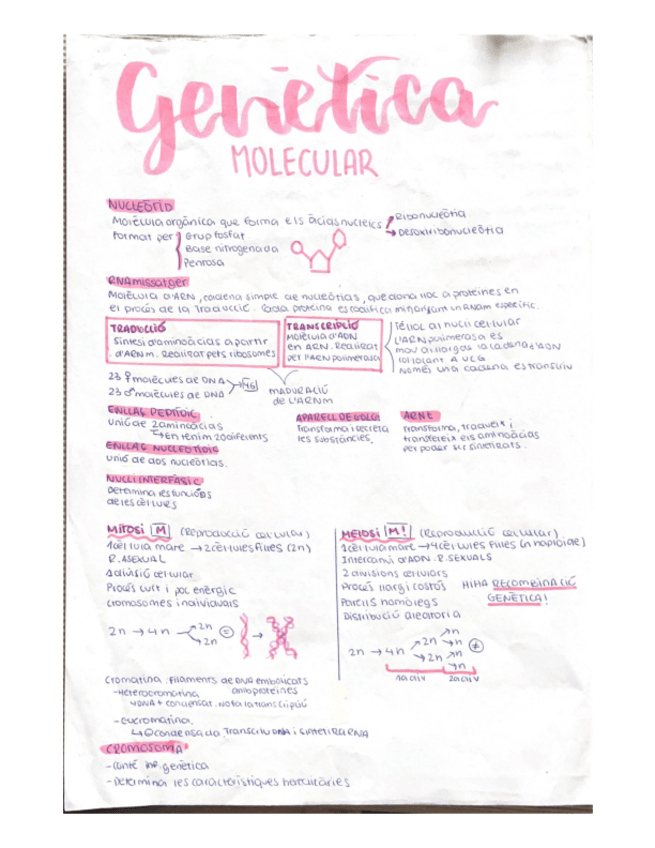 Genètica
MOLECULAR
NUCLEÒTID
Molècula orgànica que forma els àcids nucleics
Ribonucleòtid
Desoxiribonucleòtid
Format per
Grup fosfat
Base nitrogenada
Pentosa
RNA missatger
Molècula d'ARN, cadena simple de nucleòtids, que dona lloc a proteïnes en
el procés de la Traducció. Cada proteïna es codifica mitjançant un RNAm específic.
TRADUCCIÓ
Síntesi d'aminoàcids a partir
d'ARNm. Realitzat pels ribosomes
TRANSCRIPCIÓ
Molècula d'ADN
en ARN. Realitzat
per l'ARN polimerasa
Té lloc al nucli cel·lular
L'ARN polimerasa es
mou al llarg de la cadena d'ADN
col·locant A U C G
Només una cadena es transcriu
23 ♀ molècules de DNA
23 ♂ molècules de DNA
46
MADURACIÓ
de L'ARNm
ENLLAÇ PEPTÍDIC
Unió de 2 aminoàcids
↳ En tenim 20 diferents
APARELL DE GOLGI
Transforma i secreta
les substàncies.
ARNt
Transforma, tradueix i
transfereix els aminoàcids
per poder ser sintetitzats.
ENLLAÇ NUCLEOTÍDIC
Unió de dos nucleòtids.
NUCLI INTERFÀSIC
Determina les funcions
de les cèl·lules
MITOSI M (Reproducció cel·lular)
1 cèl·lula mare → 2 cèl·lules filles (2n)
R. ASEXUAL
1 divisió cel·lular
Procés curt i poc enèrgic
Cromosomes individuals
2n → 4n
2n
2n
=
MEIOSI M! (Reproducció cel·lular)
1 cèl·lula mare → 4 cèl·lules filles (n haploide)
Intercanvi d'ADN. R. SEXUALS
2 divisions cel·lulars
Procés llarg i costós
HI HA RECOMBINACIÓ
GENÈTICA!
Parells homòlegs
Distribució aleatòria
2n → 4n
2n
2n
n
n
n
n
≠
1a DIV
2a DIV
Cromatina: Filaments de DNA embolicats
amb proteïnes
- Heterocromatina
↳ DNA + condensat. No fa la transcripció
- Eucromatina.
↳ condensada Transcriu DNA i sintetitza RNA
CROMOSOMA
- Conté inf. genètica
- Determina les característiques hereditàries